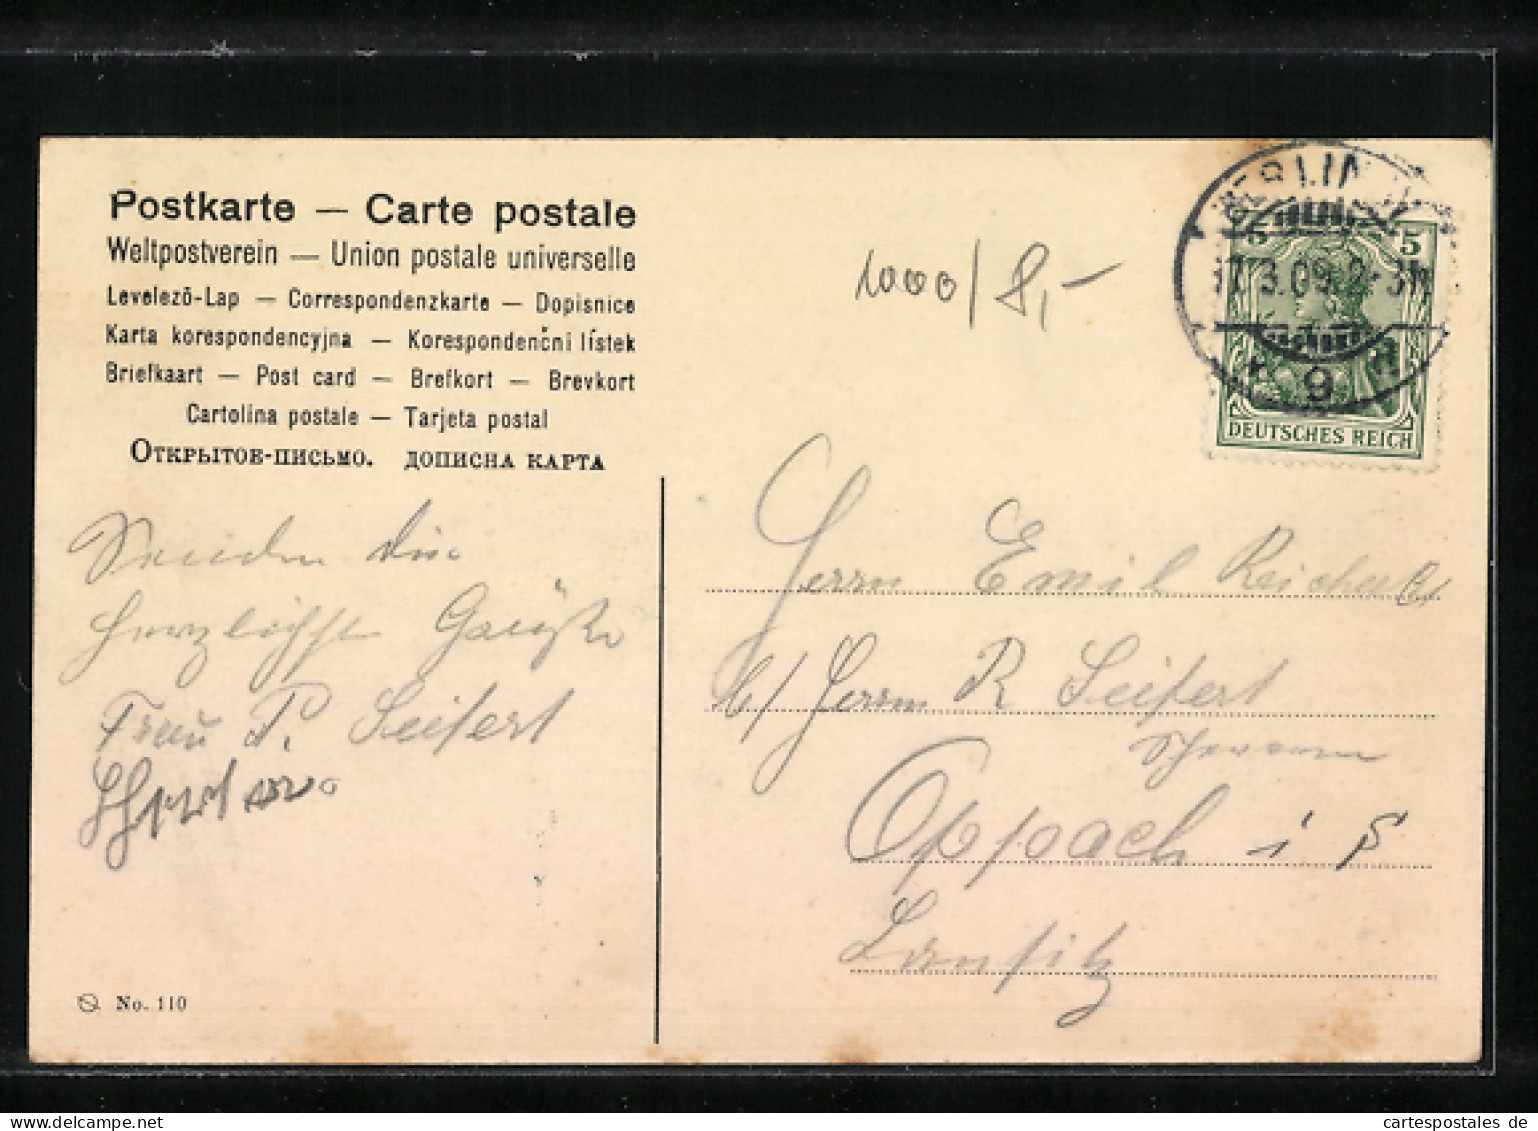 Postkarte — Carte postale
Weltpostverein — Union postale universelle
Levelező-Lap — Correspondenzkarte — Dopisnice
Karta korespondencyjna — Korespondenčni lístek
Briefkaart — Post card — Brefkort — Brevkort
Cartolina postale — Tarjeta postal
Открытое-письмо. дописна карта
1000/8,-
BERLIN
17.3.09.2-3N
9
5 5
DEUTSCHES REICH
Senden die
herzlichste Grüße
Frau P. Seifert
Herrn Emil Reichelt
b/ Herrn R Seifert
Oppach i S
Lausitz
No. 110
cartespostales de